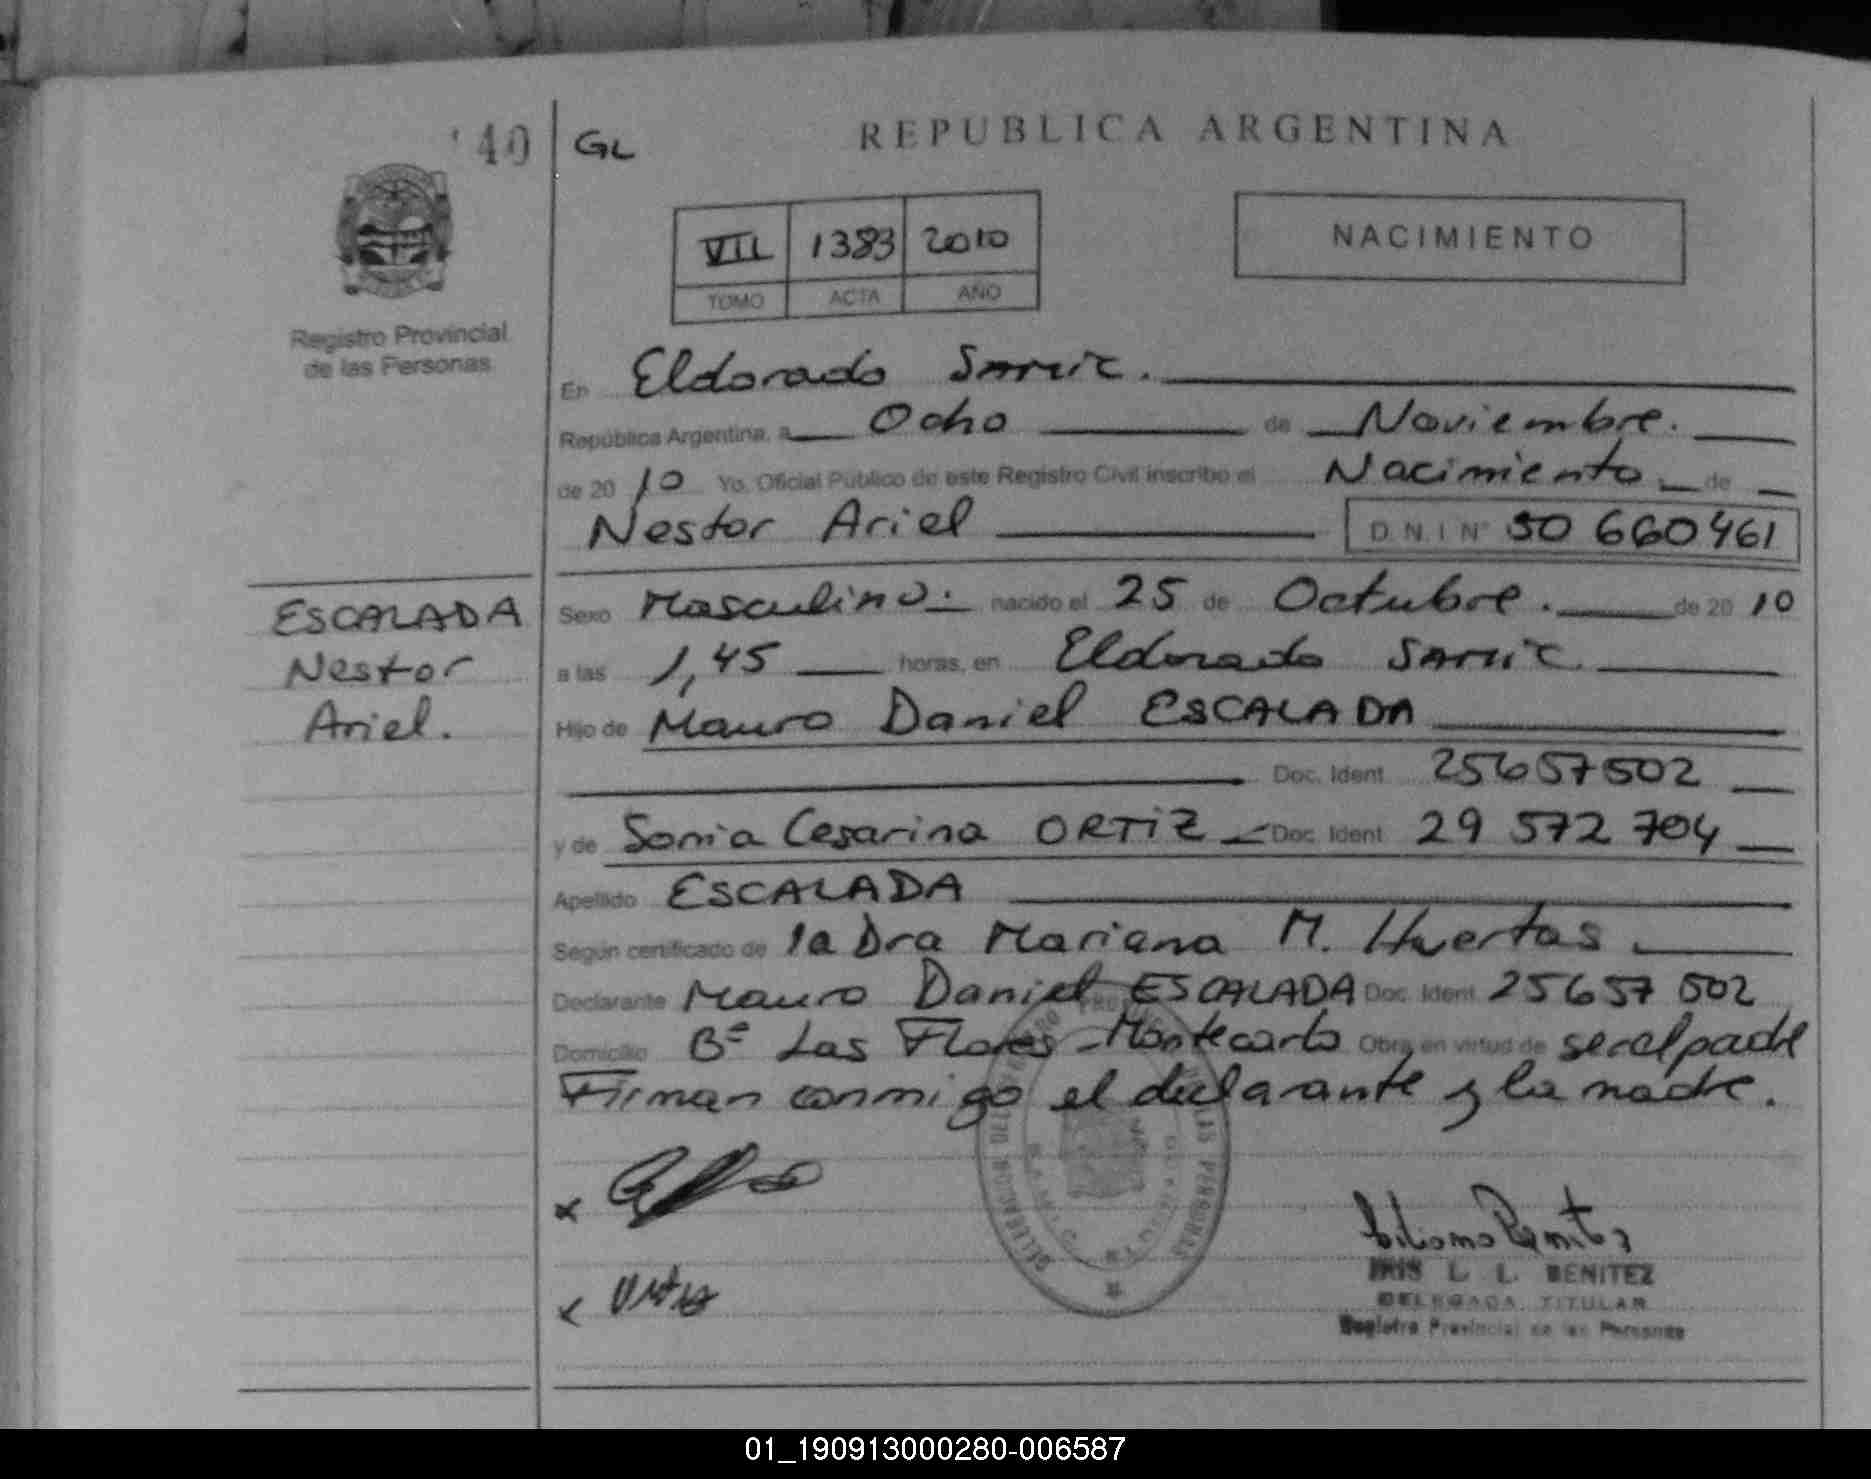 40
GL
REPUBLICA ARGENTINA
VII 1383 2010
TOMO ACTA AÑO
NACIMIENTO
Registro Provincial
de las Personas
En Eldorado SAMIC.
República Argentina, a Ocho de Noviembre.
de 20 10 Yo, Oficial Público de este Registro Civil inscribo el Nacimiento de
Nestor Ariel D.N.I N° 50 660 461
ESCALADA
Nestor
Ariel.
Sexo Masculino. nacido el 25 de Octubre. de 20 10
a las 1,45 horas, en Eldorado SAMIC.
Hijo de Mauro Daniel ESCALADA
Doc. Ident. 25657502
y de Sonia Cesarina ORTIZ Doc. Ident. 29 572 704
Apellido ESCALADA
Según certificado de la Dra Mariana M. Huertas
Declarante Mauro Daniel ESCALADA Doc. Ident. 25657 502
Domicilio B° Las Flores - Montecarlo Obra en virtud de ser el padre
Firman conmigo el declarante y la madre.
IRIS L. L. BENITEZ
DELEGADA TITULAR
Registro Provincial de las Personas
01_190913000280-006587